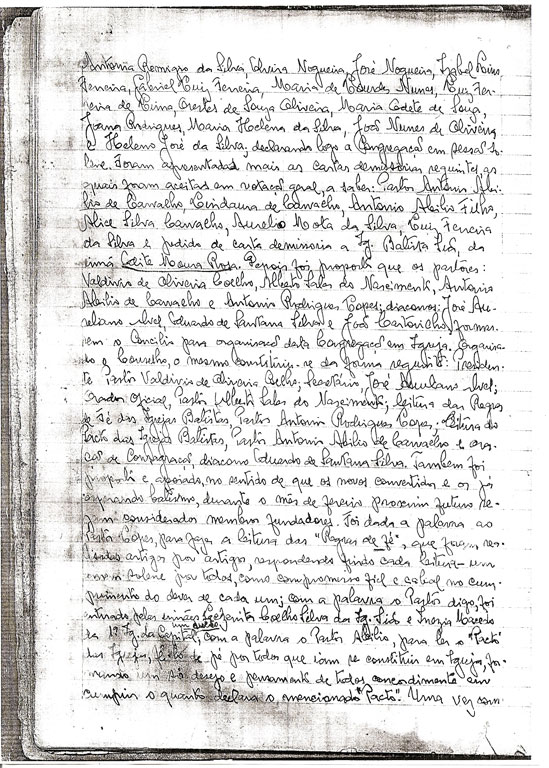 Antonia Remigio da Silva, Edvira Nogueira, José Nogueira, Izabel Luiza
Ferreira, Gabriel Luiz Ferreira, Maria de Lourdes Nunes, Luiz Fer-
reira de Lima, Orestes de Souza Oliveira, Maria Odete de Souza,
Joana Rodrigues, Maria Helena da Silva, José Nunes de Oliveira
e Heleno José da Silva, declarando logo a Congregação em pessoas
Foram apresentadas mais as cartas demissorias seguintes as
quais foram aceitas em votação geral, a saber: Pastor Antonio Abi-
lio de Carvalho, Lindaura de Carvalho, Antonio Abilio Filho,
Alice Silva Carvalho, Aurelio Mota da Silva, Luiz Ferreira
da Silva e pedido de carta demissoria a Ig. Batista Sião, da
irmã Odete Moura Rosa. Depois foi proposto que os pastores:
Valdivio de Oliveira Coelho, Alberto Sales do Nascimento, Antonio
Abilio de Carvalho e Antonio Rodrigues Lopes; diaconos: José Au-
reliano Alvel, Eduardo de Santana Silva e José formas-
sem o Concilio para organização desta Congregação em Igreja. Organiza-
do o Concilio, o mesmo constituiu-se da forma seguinte: Presiden-
te Pastor Valdivio de Oliveira Coelho; Secretario, José Aureliano Alvel;
Orador Oficial, Pastor Alberto Sales do Nascimento; leitura das Regras
de Fé das Igrejas Batistas, Pastor Antonio Rodrigues Lopes; leitura do
Pacto das Igrejas Batistas, Pastor Antonio Abilio de Carvalho e ora-
ção de Consagração, diacono Eduardo de Santana Silva. Tambem foi
proposto e apoiado, no sentido de que os novos convertidos e os já
esperando batismo, durante o mês de proximo futuro se-
jam considerados membros fundadores. Foi dada a palavra ao
Pastor Lopes, para fazer a leitura das "Regras de Fé", que foram
artigo por artigo, respondendo findo cada leitura um
solene por todos, como compromisso fiel e cabal no cum-
primento do dever de cada um; com a palavra o Pastor digo, foi
pelas irmãs Coelho Silva da Ig. Sião e Macedo
da 1ª Ig. da Capital; com a palavra o Pastor Abilio, para ler o "Pacto"
das Igrejas, de pé por todos que iam se constituir em Igreja, for-
mando um só desejo e pensamento de todos concordimente em
cumprir o quanto declara o mencionado "Pacto". Uma vez com-